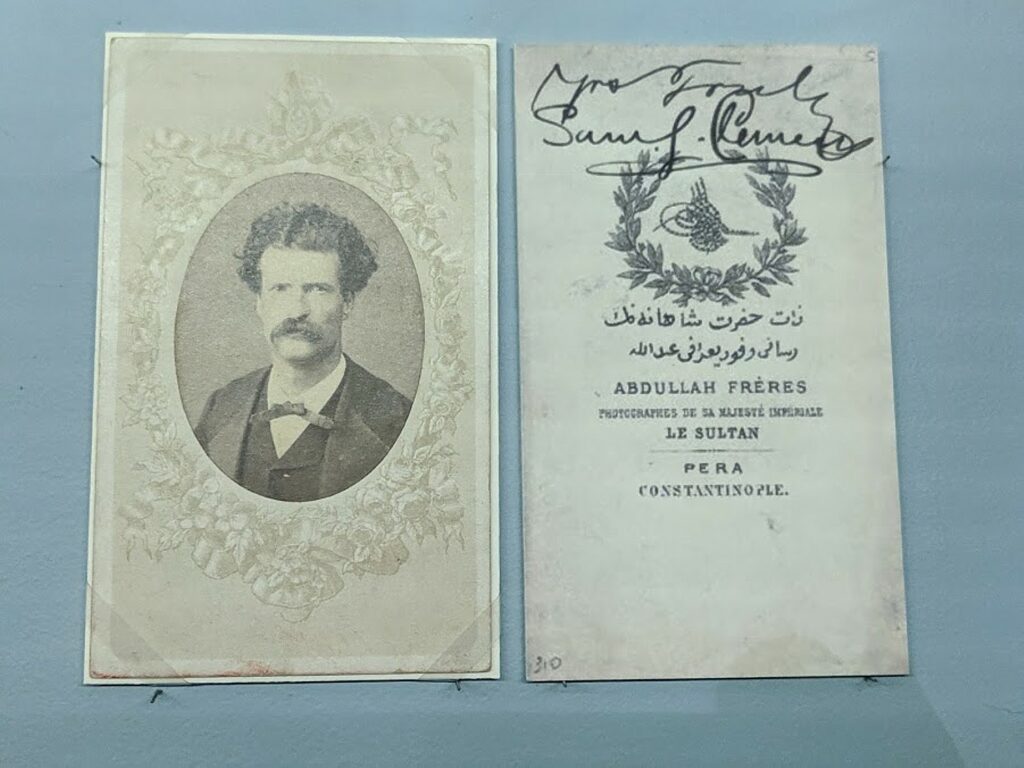 Yrs Truly
Sam. L. Clemens
ذات حضرت شاهانه نك
رسامى
عبدالله
ABDULLAH FRÈRES
PHOTOGRAPHES DE SA MAJESTÉ IMPÉRIALE
LE SULTAN
PERA
CONSTANTINOPLE.
310